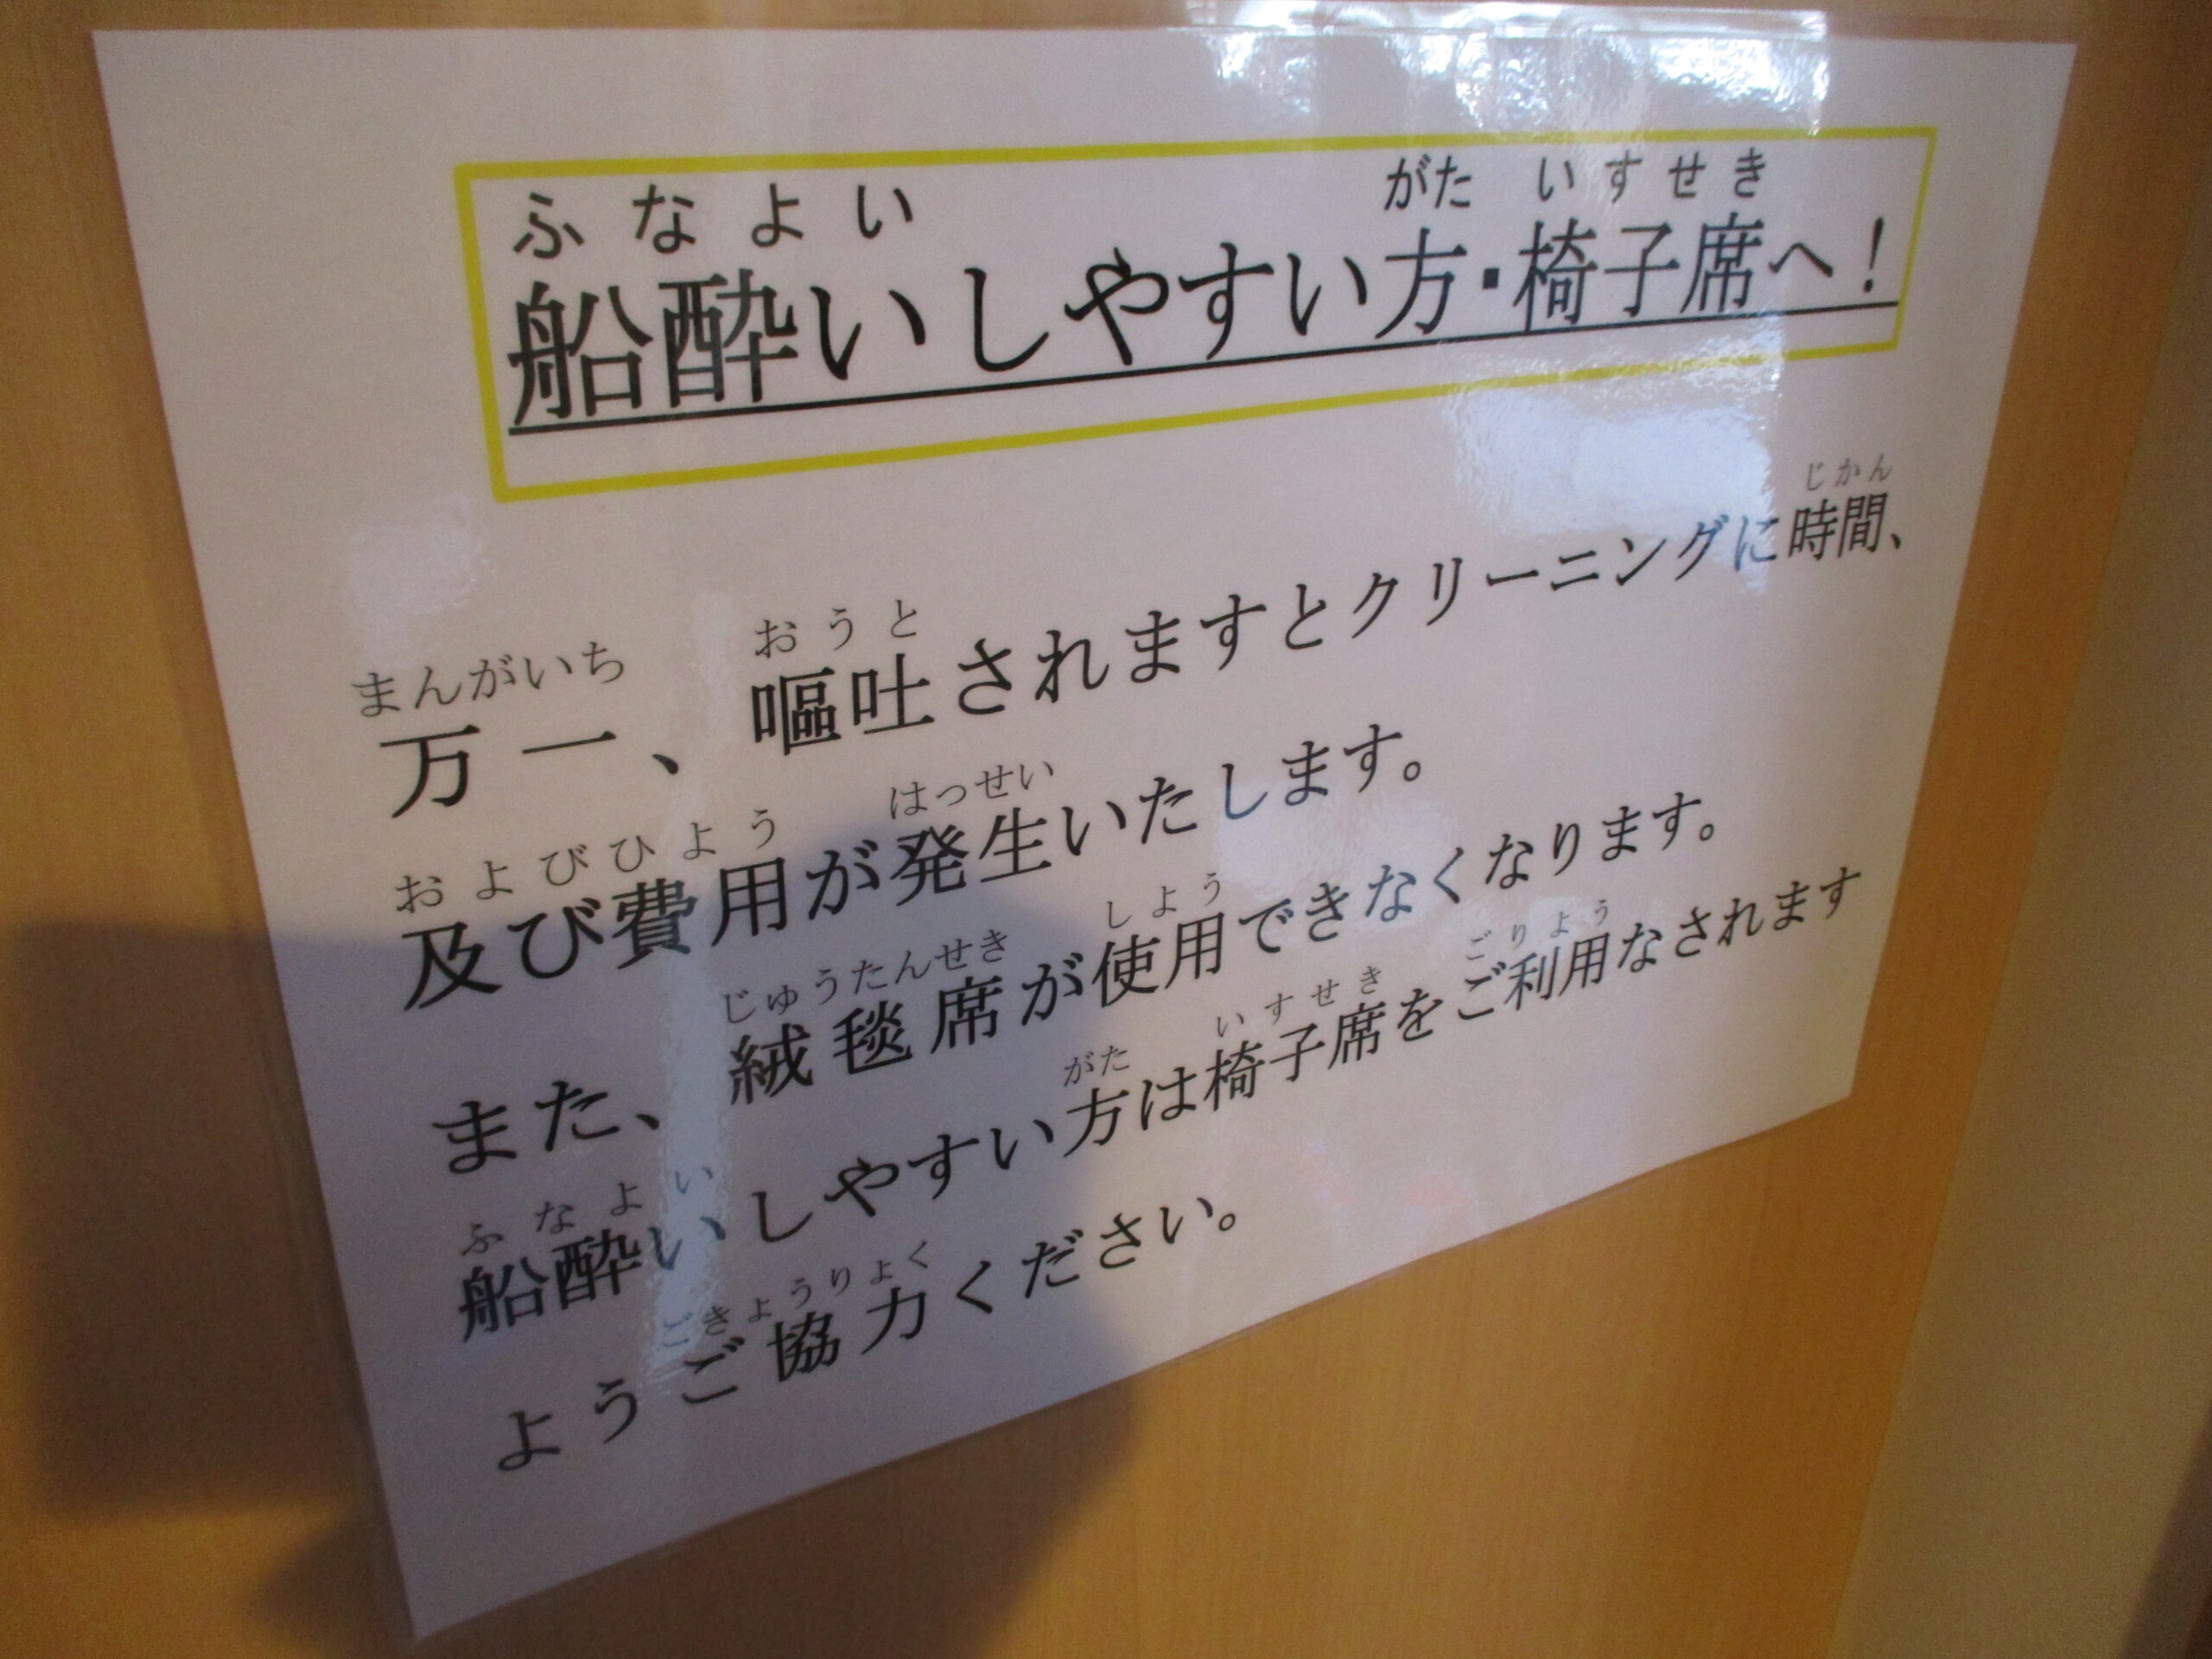 ふなよい がた いすせき
船酔いしやすい方・椅子席へ！
まんがいち おうと じかん
万一、嘔吐されますとクリーニングに時間、
およびひよう はっせい
及び費用が発生いたします。
じゅうたんせき しよう
また、絨毯席が使用できなくなります。
ふなよい がた いすせき ごりよう
船酔いしやすい方は椅子席をご利用なされます
ごきょうりょく
ようご協力ください。